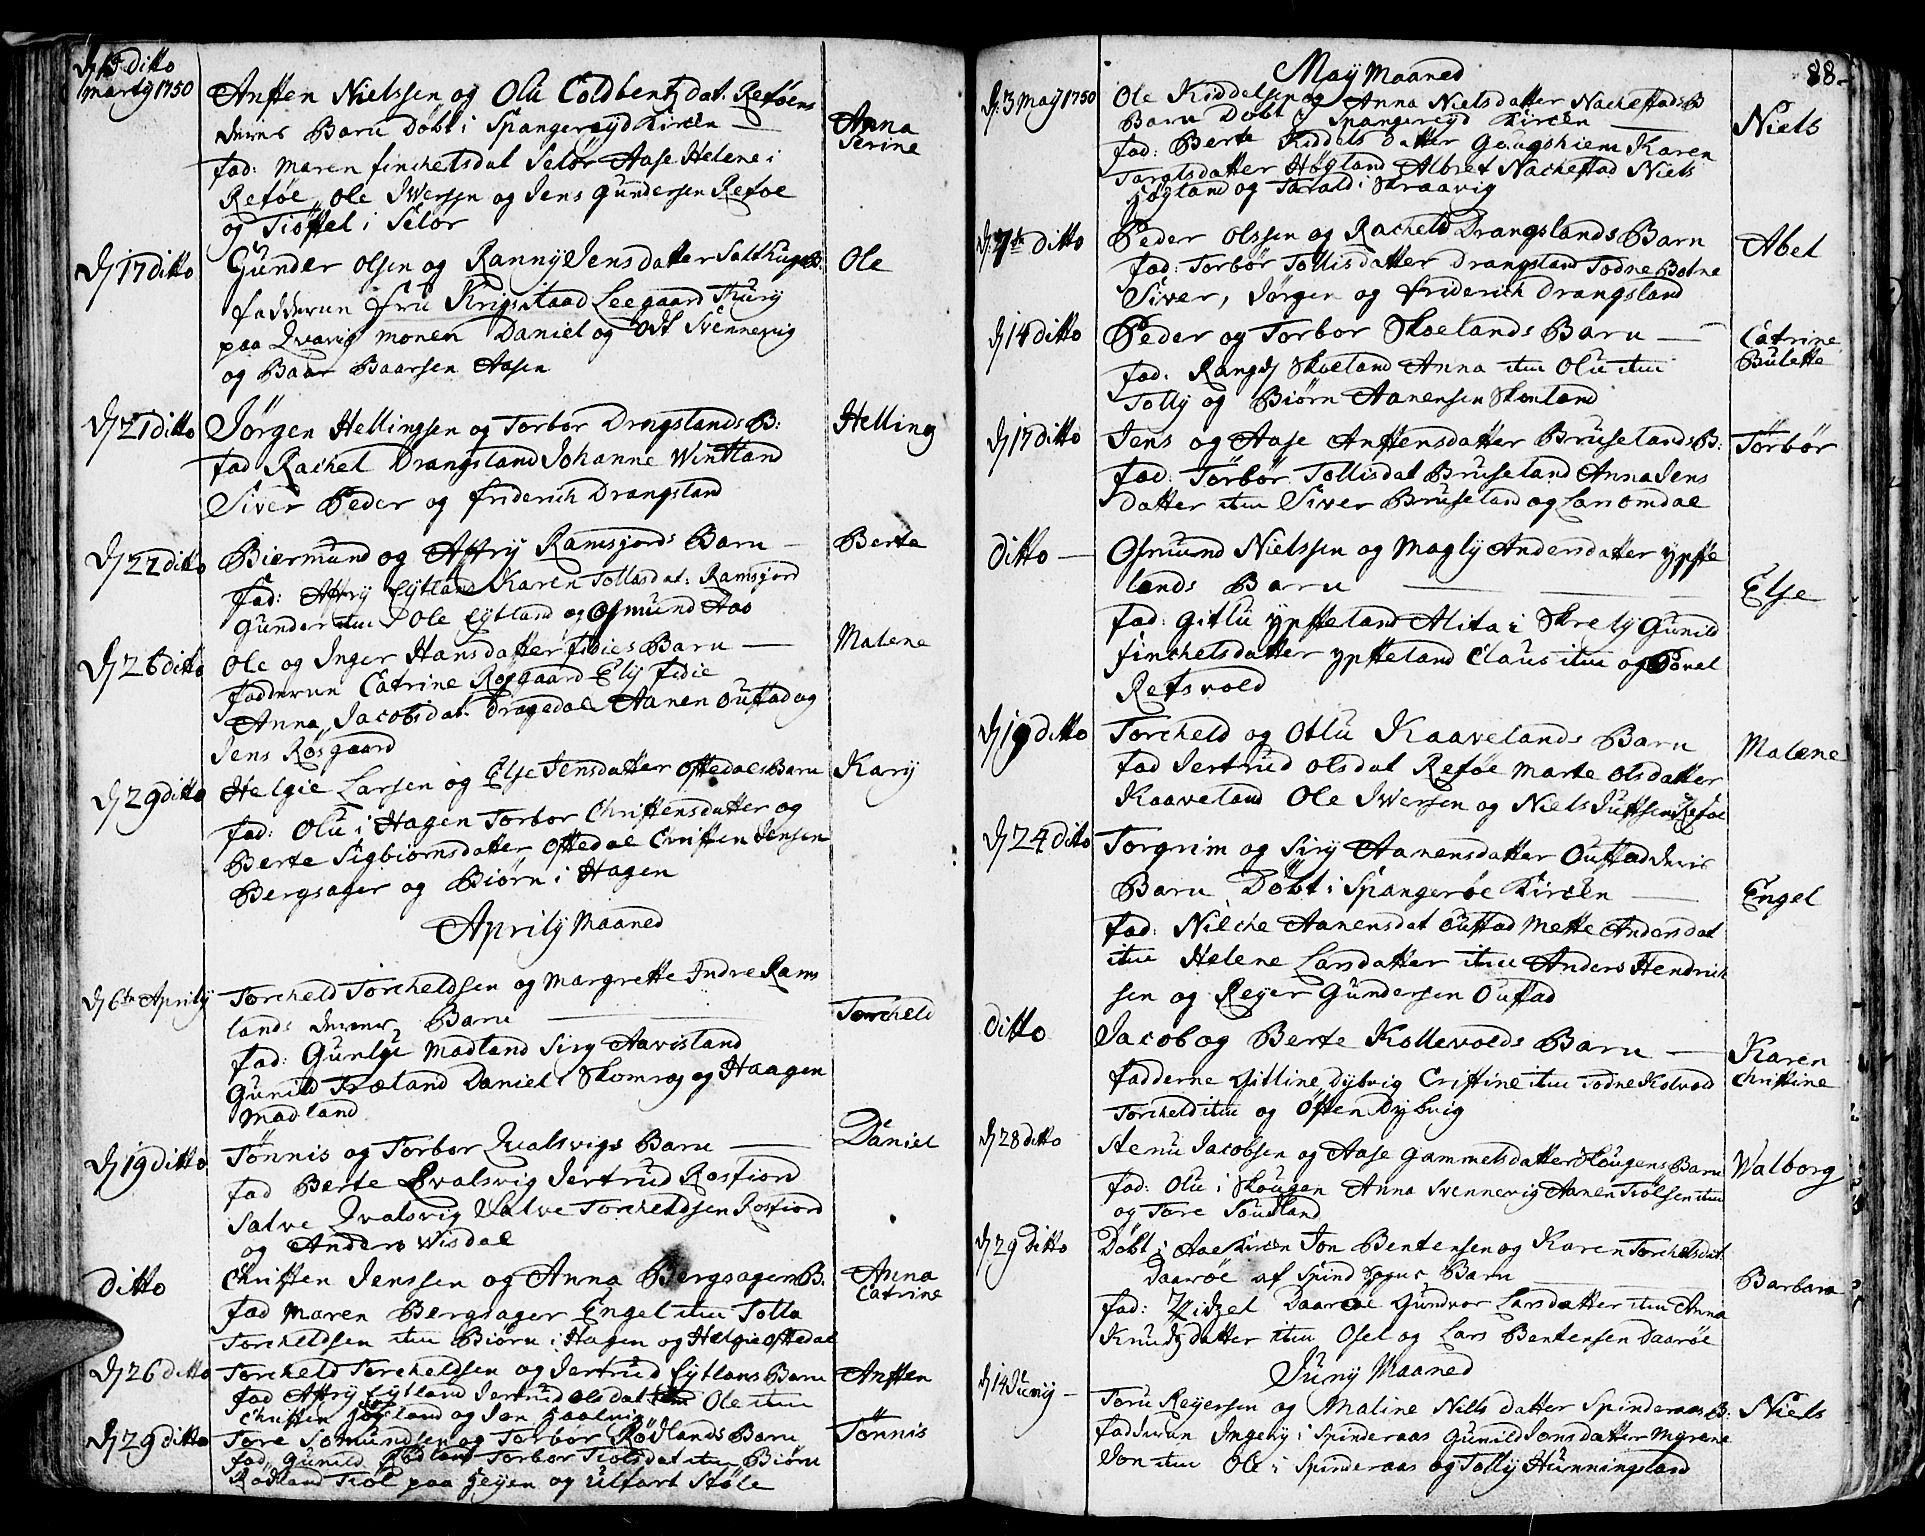 dj 15 ditto
marty 1750
Ansten Nielssen og Olu Coldbentz dat. Reføens
deres Barn Døbt i Spangereyd Kircken —
Anna
Serine
fad: Maren finchelsdat Selør Aase Helene i
Reføe, Ole Iwersen og Jens Gundersen Reføe
og Tiøstel i Selør
dj 17 ditto
Gunder Olsen og Ranny Jensdatter Salthugs B:
Ole
fadderne fru Krigsstaad Leegaard Thury
paa Qvarig monen Daniel og Odt Svennevig
og Baar Baarsen Aasen
dj 21 ditto
Jørgen Hellingsen og Torbor Drangslands B:
Helling
fad Rachel Drangsland Johanne Wintland
Siver Peder og friderich Drangsland
dj 22 ditto
Biermund og Affry Ramsfjords Barn —
Berte
fad: Affry Eytland Karen Tollisdat: Ramsfjord
Gunder item Ole Eytland og Osmund Aas
dj 26 ditto
Ole og Inger Hansdatter fidies Barn —
Malene
fadderne Catrine Røsgaard Ely fidie
Anna Jacobsdat. Dragedal Aanen Oufstad og
Jens Røsgaard
dj 29 ditto
Helgie Larsen og Else Jensdatter Oftedals Barn
Kary
fad: Olu i Hagen Torbor Christensdatter og
Berte Sigbiornsdatter Oftedal Cristen Jensen
Bergsager og Biørn i Hagen
Aprily Maaned
dj 6te Aprily
Torcheld Torcheldsen og Margrette Indre Rams
lands deres Barn —
Torcheld
fad: Gunlye Madland Siry Aavisland
Gunild Træland Daniel Skomrag og Haagen
Madland
dj 19 ditto
Tønnis og Torbor Qvalsvigs Barn —
Daniel
fad Berte Qvalsvig Jertrud Rosfiord
Salve Qvalsvig Salve Torcheldsen Rosfiord
og Anders Wisdal
ditto
Christen Jenssen og Anna Bergsagers B.
Anna
Catrine
fad Maren Bergsager Engel item Tolla
Torcheldsen item Biørn i Hagen og Helgie Oftedal
dj 26 ditto
Torcheld Torcheldsen og Jertrud Eytlans Barn
Ansten
fad Affry Eytland Jertrud Olsdat item Ole item
Christen Høyland og Jon
dj 29 ditto
Tore Somundsen og Torbor Rødlands Barn
Tønnis
fad Gunild Rødland Torbor Tiølsdat item Biørn
Rødland Tiøl paa Heyen og Ulfart Støle
88.
May Maaned
dj 3 May 1750
Ole Kiddelsen og Anna Nielsdatter Nachestads B
Barn Døbt i Spangereyd Kircken —
Niels
fad: Berte Kiddels datter Gougshiem Karen
Tarølsdatter Høgland Albret Nachestad Niels
Høgland og Tarald i Skraavig
dj 7de ditto
Peder Olssen og Racheld Drangslands Barn
Abel
fad: Torbor Tollisdatter Drangsland Todne Botne
Siver, Jørgen og friderich Drangsland
dj 14 ditto
Peder og Torbor Skoelands Barn —
Catrine
Bulette
fad: Rangdj Skoeland Anna item Olu item
Tolly og Biørn Aanensen Skoeland
dj 17 ditto
Jens og Aase Anstensdatter Bruselands B:
Torbør
fad: Torbør Tollisdat Bruseland Anna Jens
Datter item Siver Bruseland og Lars omdal
ditto —
Osmund Nielssen og Magly Andersdatter ypste
lands Barn —
Else
fad: Gitlu ypsteland Alita i Skrely Gunild
finchelsdatter ypsteland Claus item og Povel
Refsvold
dj 19 ditto
Torcheld og Otlu Kaavelands Barn
Malene
fad Jertrud Olsdat Reføe Marte Olsdatter
Kaaveland Ole Iwersen og Niels Justsen Reføe
dj 24 ditto
Torgrim og Siry Aanensdatter Oufstad deris
Barn Døbt i Spangerøe Kircken —
Engel
fad: Nilche Aanensdat Oufstad Mette Andersdat
item Helene Larsdatter item Anders Hendrich
sen og Reyer Gundersen Oufstad
ditto
Jacob og Berte Kollevolds Barn —
Karen
Christine
fadderne Gitline Dybvig Cristine item Todne Kolvold
Torcheld item og Østen Dybvig
dj 28 ditto
Stenu Jacobsen og Aase Gammelsdatter Skougens Barn
Walborg
fad: Olu i Skougen Anna Svennevig Aanen Tiølsen item
og Tore Soudland
dj 29 ditto
Døbt i Aae Kircken Jon Bentensen og Karen Torchelsdat
Daarøe af Spind Sogns Barn —
Barbara
fad: Zidzel Daarøe Gundvor Larsdatter item Anna
Knudzdatter item Osel og Lars Bentensen Daarøe
Juny Maaned
dj 14 Juny —
Toru Reyersen og Maline Nills datter Spinderaas B:
Niels
fadderne Ingebj i Spinderaas Gunild Jonsdatter Mgrene
Jon item Ole i Spinderaas og Tolly Hunningsland